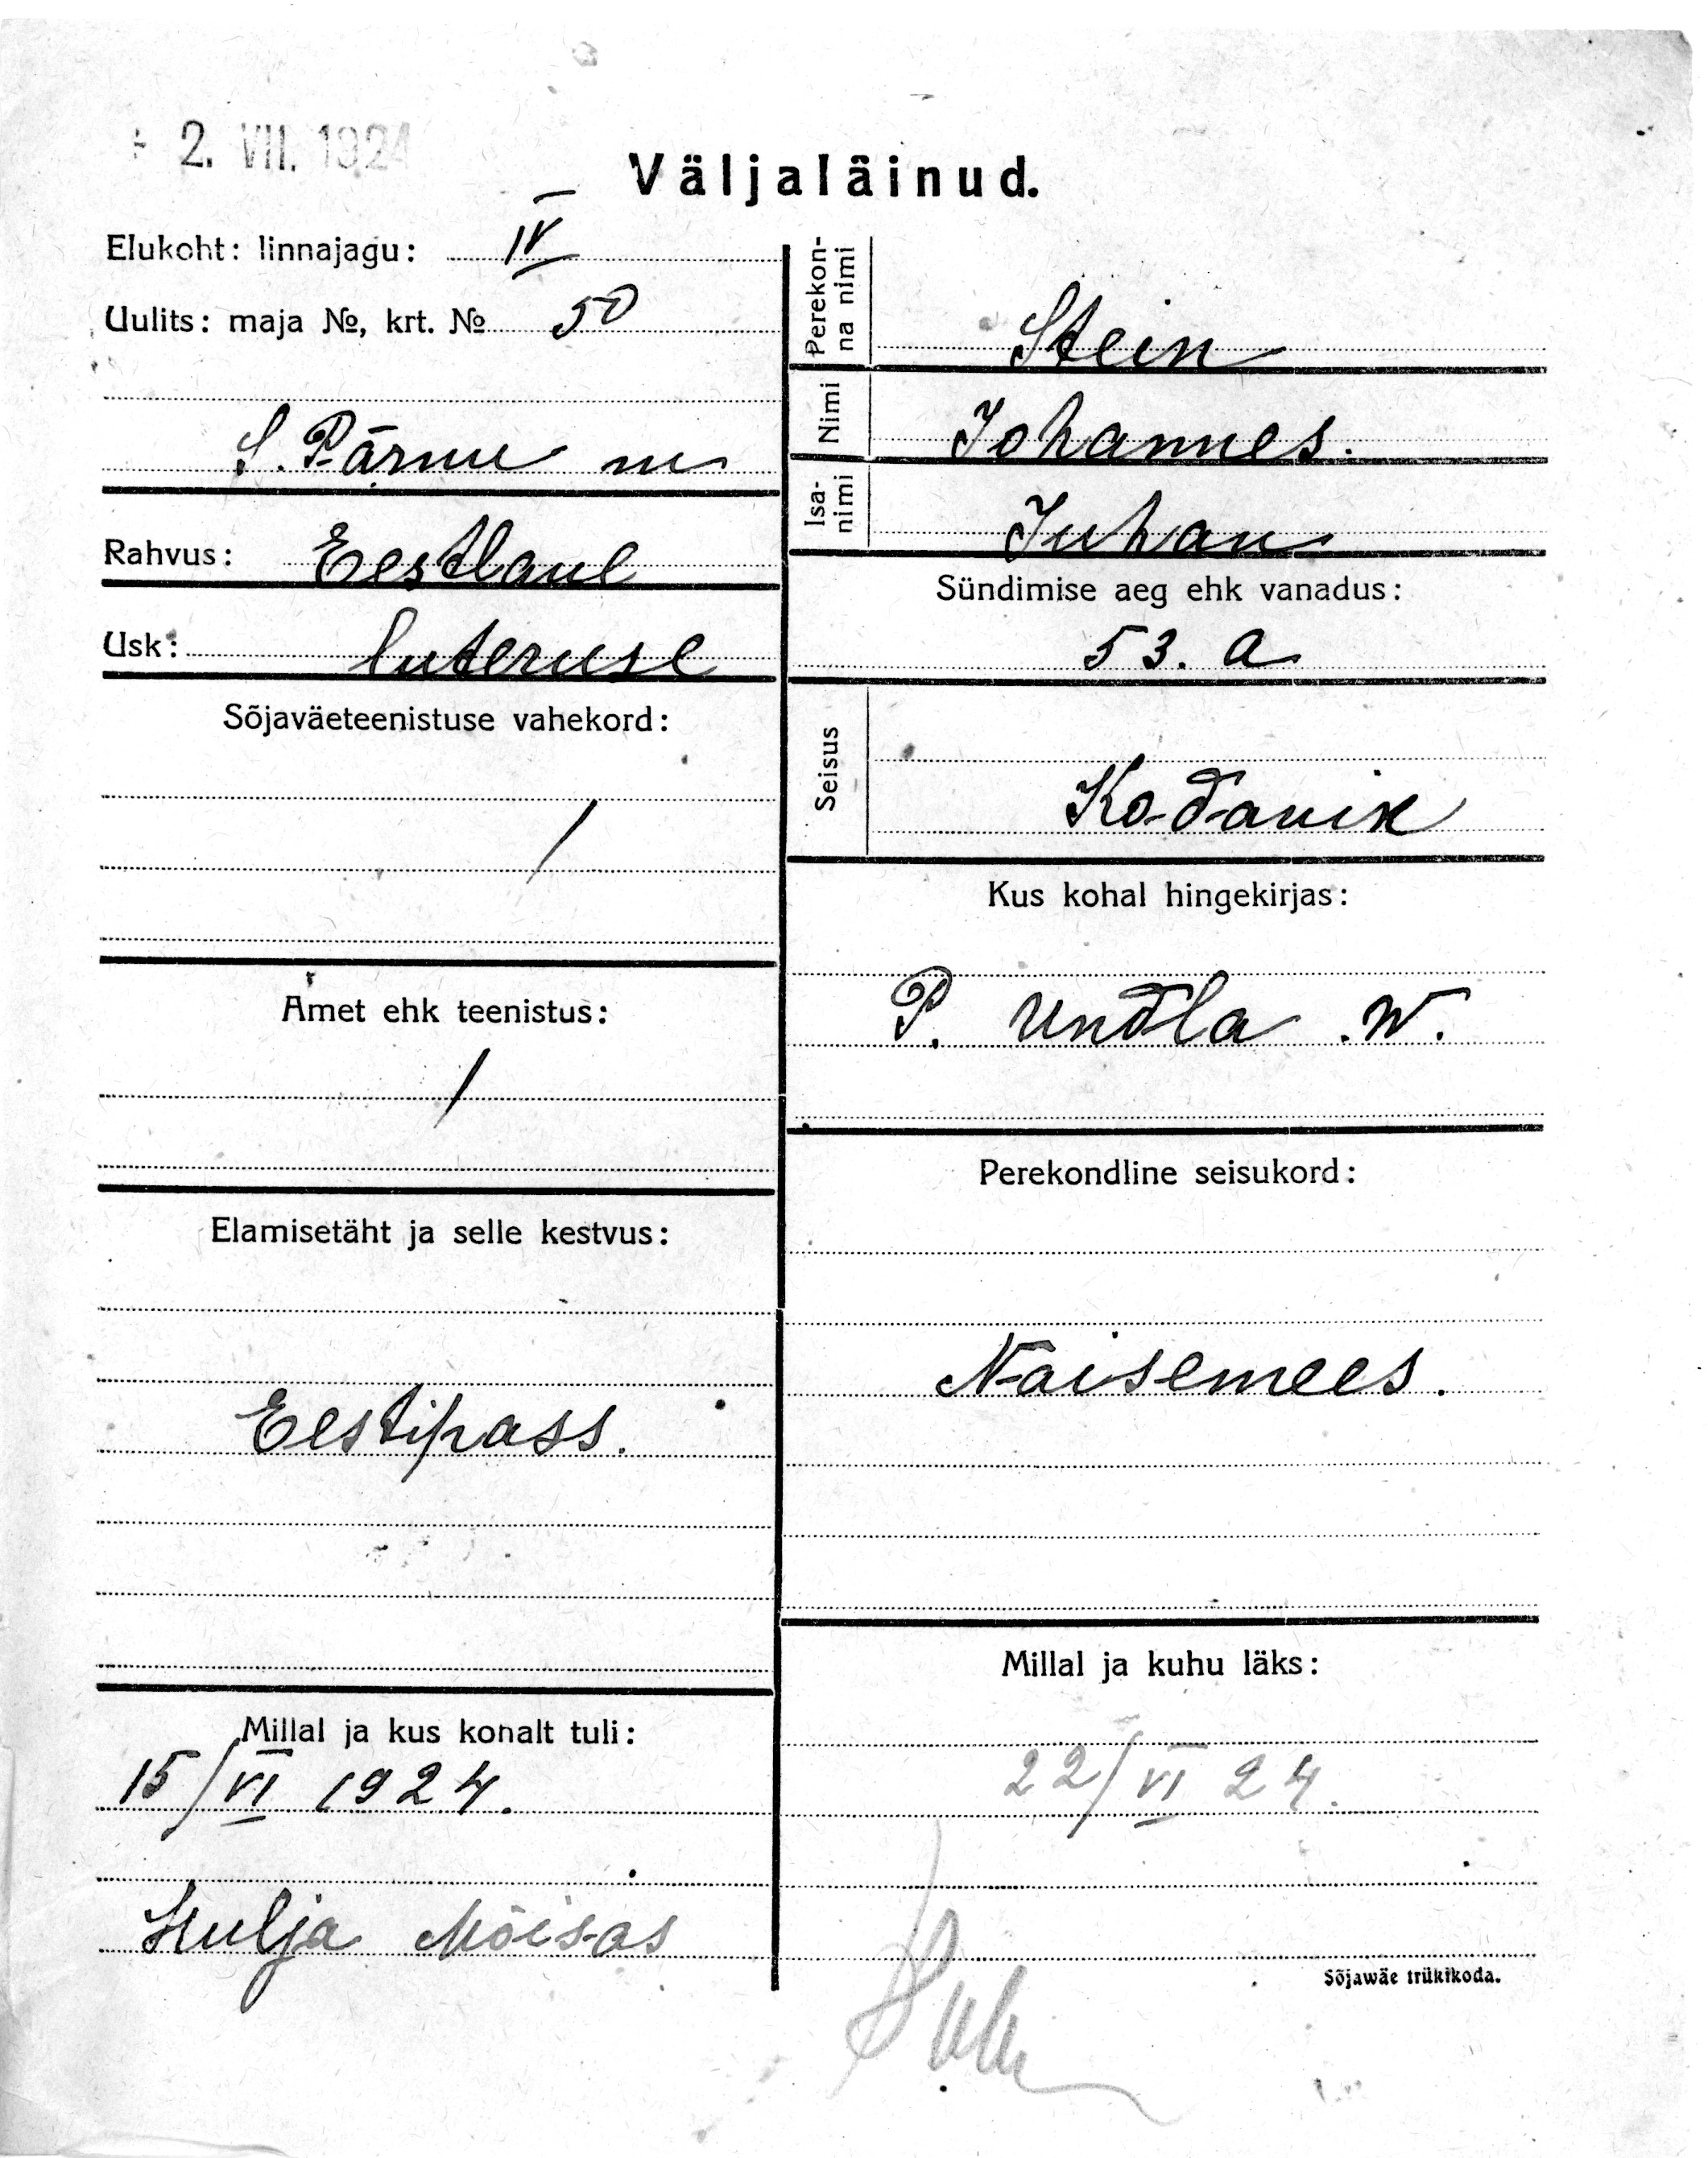 2. VII. 1924
Väljaläinud.
Elukoht: linnajagu: IV
Uulits: maja №, krt. № 50
S. Pärnu m
Rahvus: Eestlane
Usk: luteruse
Sõjaväeteenistuse vahekord:
/
Amet ehk teenistus:
/
Elamisetäht ja selle kestvus:
Eestipass.
Millal ja kus kohalt tuli:
15/VI 1924.
Hulja Mõisas
Perekon-
na nimi
Stein
Nimi
Johannes.
Isa-
nimi
Juhan
Sündimise aeg ehk vanadus:
53. a
Seisus
Kodanik
Kus kohal hingekirjas:
P. Undla .W.
Perekondline seisukord:
Naisemees.
Millal ja kuhu läks:
22/VI 24.
Sõjawäe trükikoda.